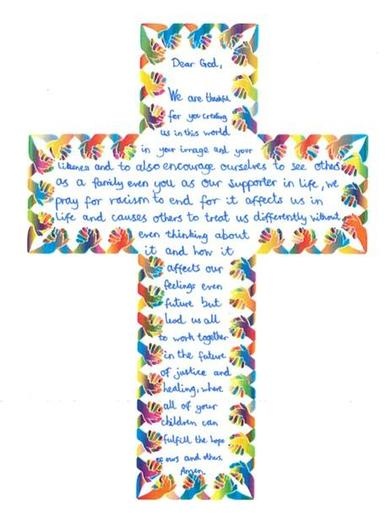 Dear God,
We are thankful
for you creating
us in this world
in your image and your
likeness and to also encourage ourselves to see others
as a family even you as our supporter in life, we
pray for racism to end for it affects us in
life and causes others to treat us differently without
even thinking about
it and how it
affects our
feelings even
future but
lead us all
to work together
in the future
of justice and
healing, where
all of your
children can
fulfill the hope
ours and others.
Amen.